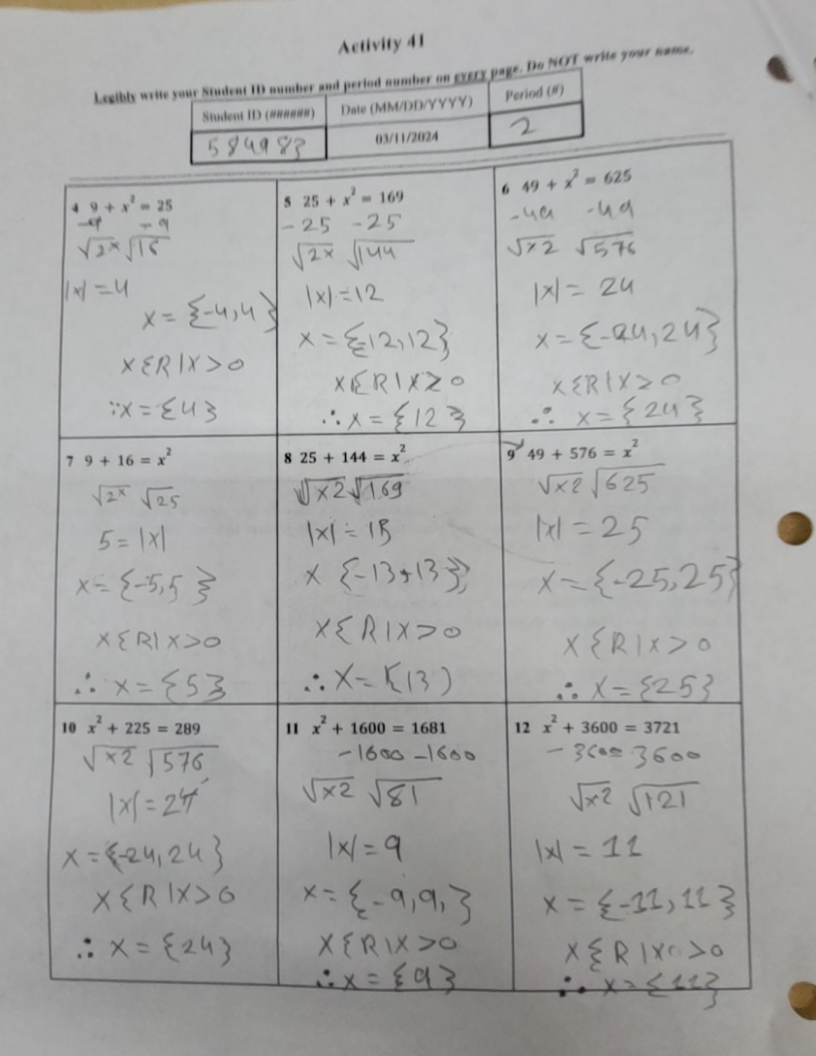 Activity 41
Legibly write your Student ID number and period number on every page. Do NOT write your name.
Student ID (######) Date (MM/DD/YYYY) Period (#)
584983 03/11/2024 2
4 9 + x² = 25
-9 -9
√2x √16
|x| = 4
x = {-4,4}
x{R|x>0
∵x = {4}
5 25 + x² = 169
-25 -25
√2x √144
|x| = 12
x = {-12,12}
x{R|x>0
∴ x = {12}
6 49 + x² = 625
-49 -49
√x2 √576
|x| = 24
x = {-24,24}
x{R|x>0
∴ x = {24}
7 9 + 16 = x²
√2x √25
5 = |x|
x = {-5,5}
x{R|x>0
∴ x = {5}
8 25 + 144 = x²
√x2 √169
|x| = 13
x {-13+13}
x{R|x>0
∴ x = {13)
9 49 + 576 = x²
√x2 √625
|x| = 25
x = {-25,25}
x{R|x>0
∴ x = {25}
10 x² + 225 = 289
√x2 √576
|x| = 24
x = {-24,24}
x{R|x>0
∴ x = {24}
11 x² + 1600 = 1681
-1600 -1600
√x2 √81
|x| = 9
x = {-9,9,}
x{R|x>0
∴ x = {9}
12 x² + 3600 = 3721
-3600 3600
√x2 √121
|x| = 11
x = {-11,11}
x{R|x>0
∴ x = {11}